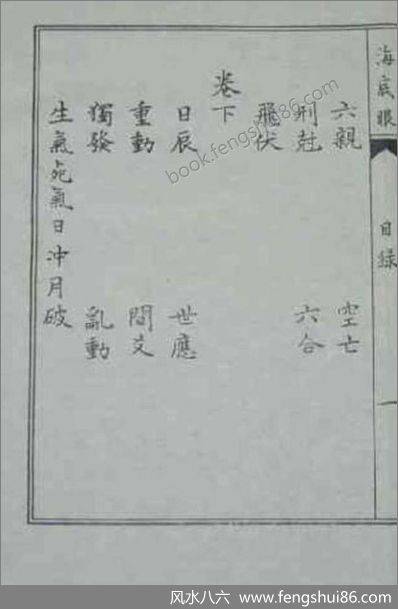 海底眼
目錄
一
六親 空亡
刑尅 六合
飛伏
卷下
日辰 世應
重動 間爻
獨發 亂動
生氣死氣日冲月破
book.fengshui86.com
风水八六 www.fengshui86.com